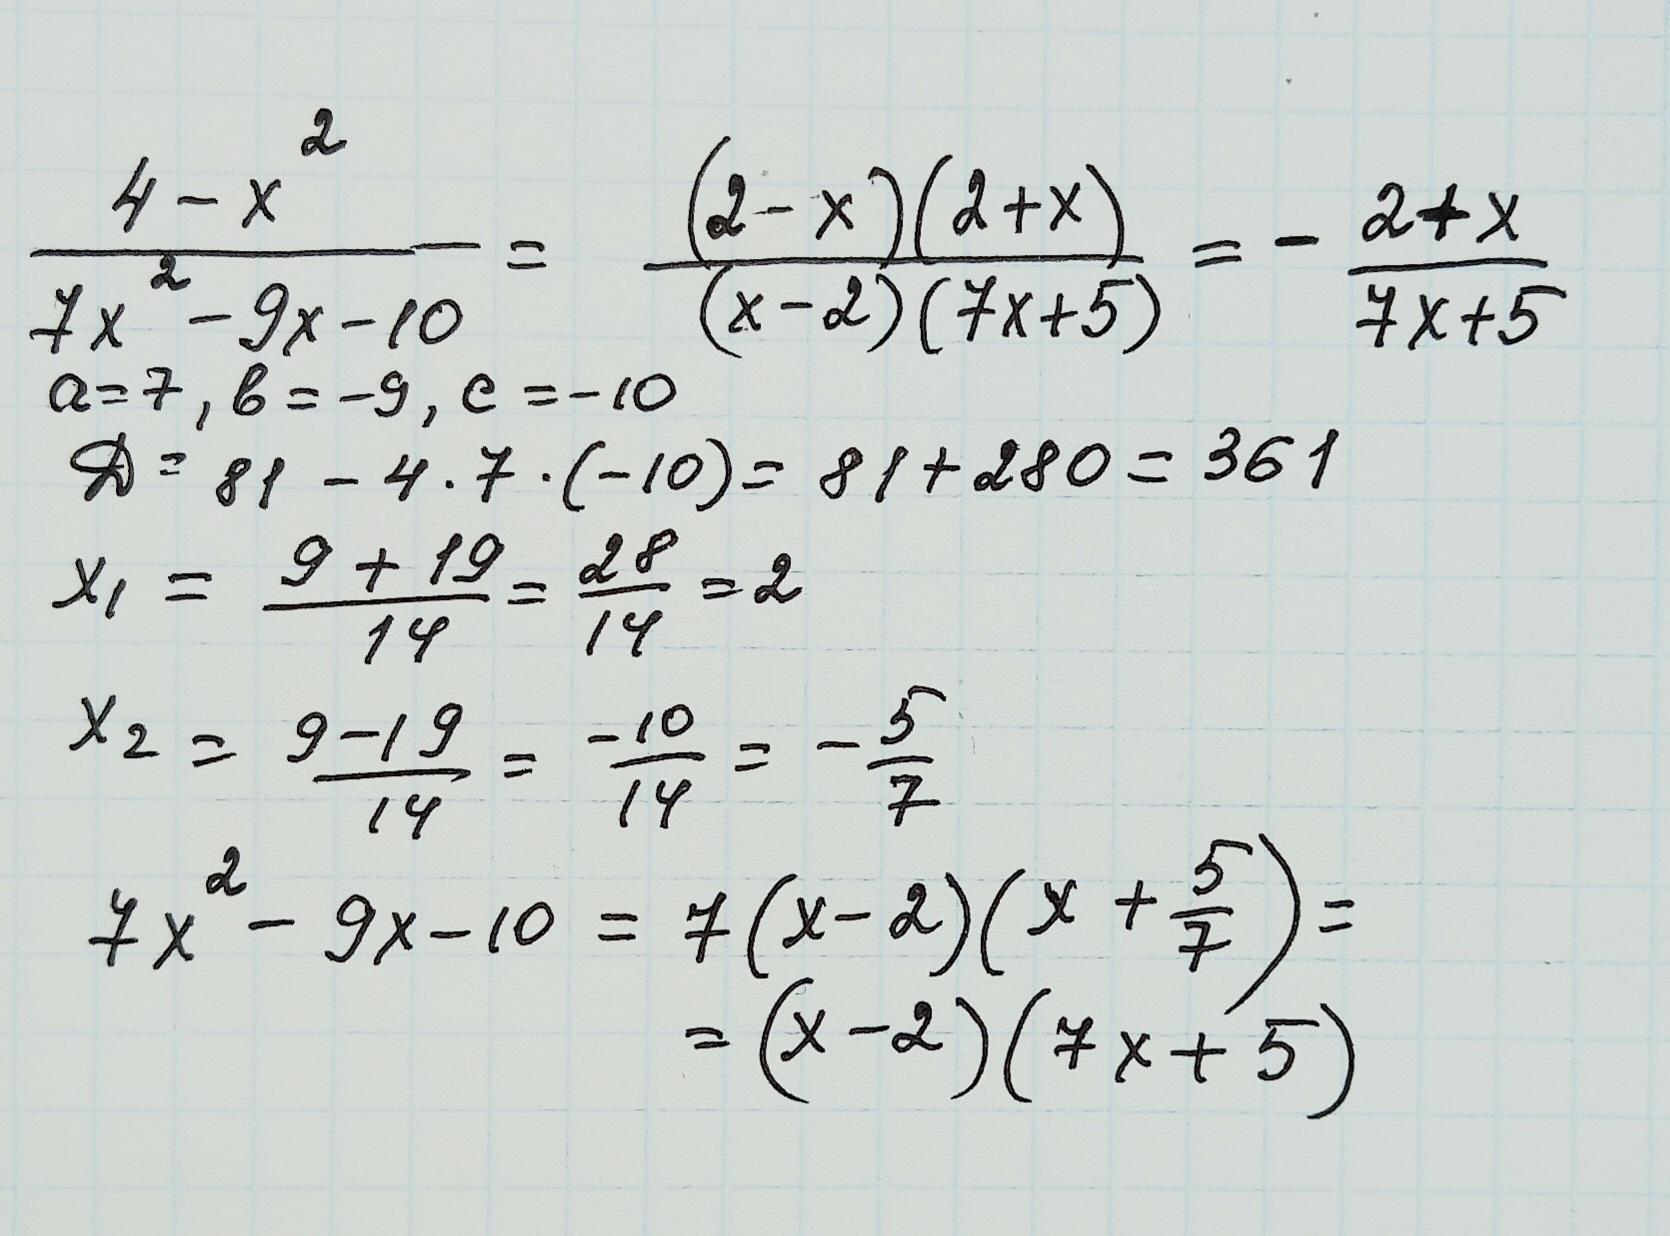 (4 - x²)/(7x² - 9x - 10) = ((2 - x)(2 + x))/((x - 2)(7x + 5)) = - (2 + x)/(7x + 5)
a = 7, b = -9, c = -10
D = 81 - 4 · 7 · (-10) = 81 + 280 = 361
x₁ = (9 + 19)/14 = 28/14 = 2
x₂ = (9 - 19)/14 = -10/14 = - 5/7
7x² - 9x - 10 = 7(x - 2)(x + 5/7) =
= (x - 2)(7x + 5)